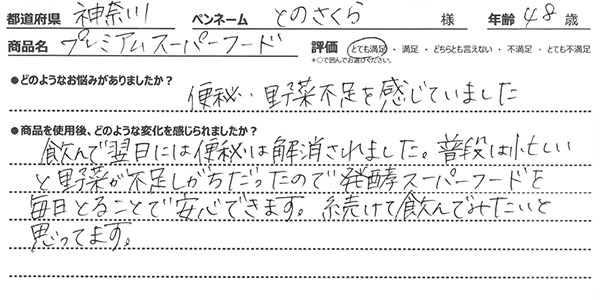 都道府県 神奈川 ペンネーム とのさくら 様 年齢 48 歳
商品名 プレミアムスーパーフード 評価 とても満足 ・ 満足 ・ どちらとも言えない ・ 不満足 ・ とても不満足
*○で囲んでお選びください。
●どのようなお悩みがありましたか?
便秘・野菜不足を感じていました
●商品を使用後、どのような変化を感じられましたか?
飲んで翌日には便秘は解消されました。普段は忙しい
と野菜が不足しがちだったので発酵スーパーフードを
毎日とることで安心できます。続けて飲んでみたいと
思ってます。